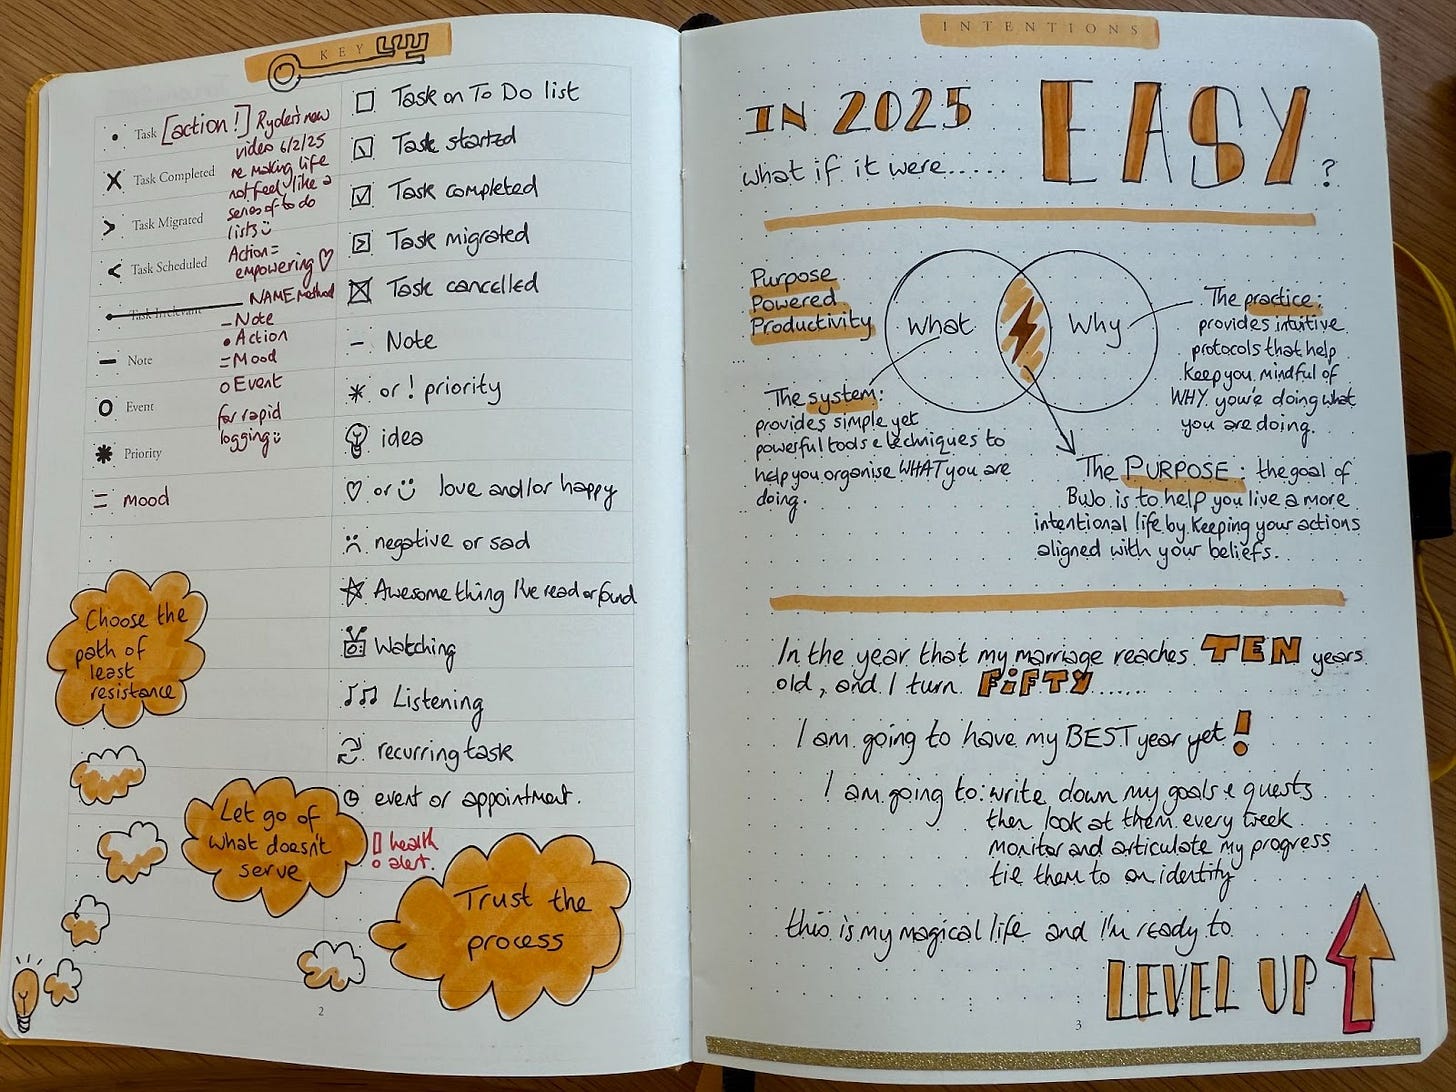 KEY
• Task [action!] Ryder's new
video 6/2/25
re making life
not feel like a
series of to do
lists
Action =
empowering ♡
X Task Completed
> Task Migrated
< Task Scheduled
Task Irrelevant
NAME method
– Note
• Action
= Mood
o Event
for rapid
logging
– Note
O Event
✱ Priority
= mood
Task on To Do list
Task started
Task completed
Task migrated
Task cancelled
– Note
* or ! priority
idea
♡ or ☺ love and/or happy
☹ negative or sad
☆ Awesome thing I've read or found
Watching
♫ Listening
recurring task
event or appointment.
! health
alert.
Choose the
path of
least
resistance
Let go of
what doesn't
serve
Trust the
process
2
INTENTIONS
IN 2025
what if it were...... EASY?
Purpose
Powered
Productivity
What
Why
The system:
provides simple yet
powerful tools & techniques to
help you organise WHAT you are
doing.
The practice:
provides intuitive
protocols that help
keep you mindful of
WHY you're doing what
you are doing.
The PURPOSE: the goal of
BuJo is to help you live a more
intentional life by keeping your actions
aligned with your beliefs.
In the year that my marriage reaches TEN years
old, and I turn FiFTY......
I am going to have my BEST year yet!
I am going to: write down my goals & quests
then look at them every week
monitor and articulate my progress
tie them to an identity
this is my magical life and I'm ready to
LEVEL UP
3